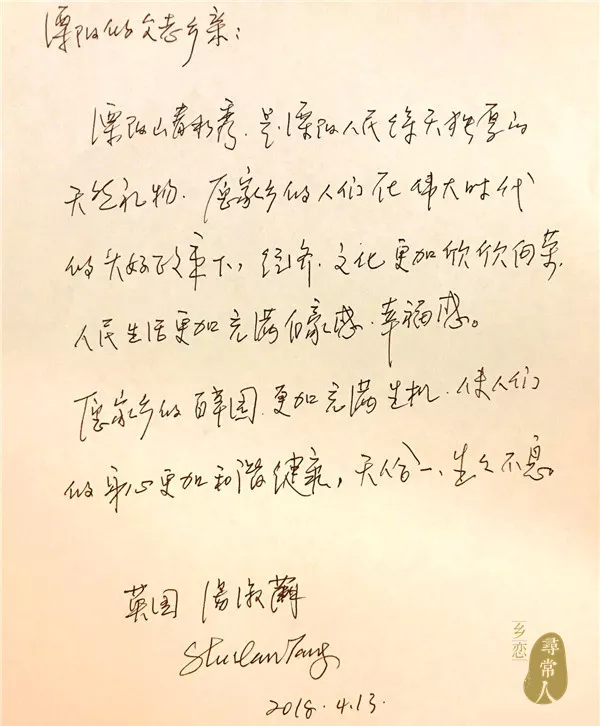 溧阳的父老乡亲：
溧阳山青水秀.是溧阳人民得天独厚的
天然礼物.愿家乡的人们在伟大时代
的美好政策下，经济.文化更加欣欣向荣.
人民生活更加充满自豪感.幸福感。
愿家乡的百草园.更加充满生机.使人们
的身心更加和谐健康，天人合一、生生不息。
英国 汤淑蘭
Shulan Tang
2018.4.13.
乡恋
尋常人